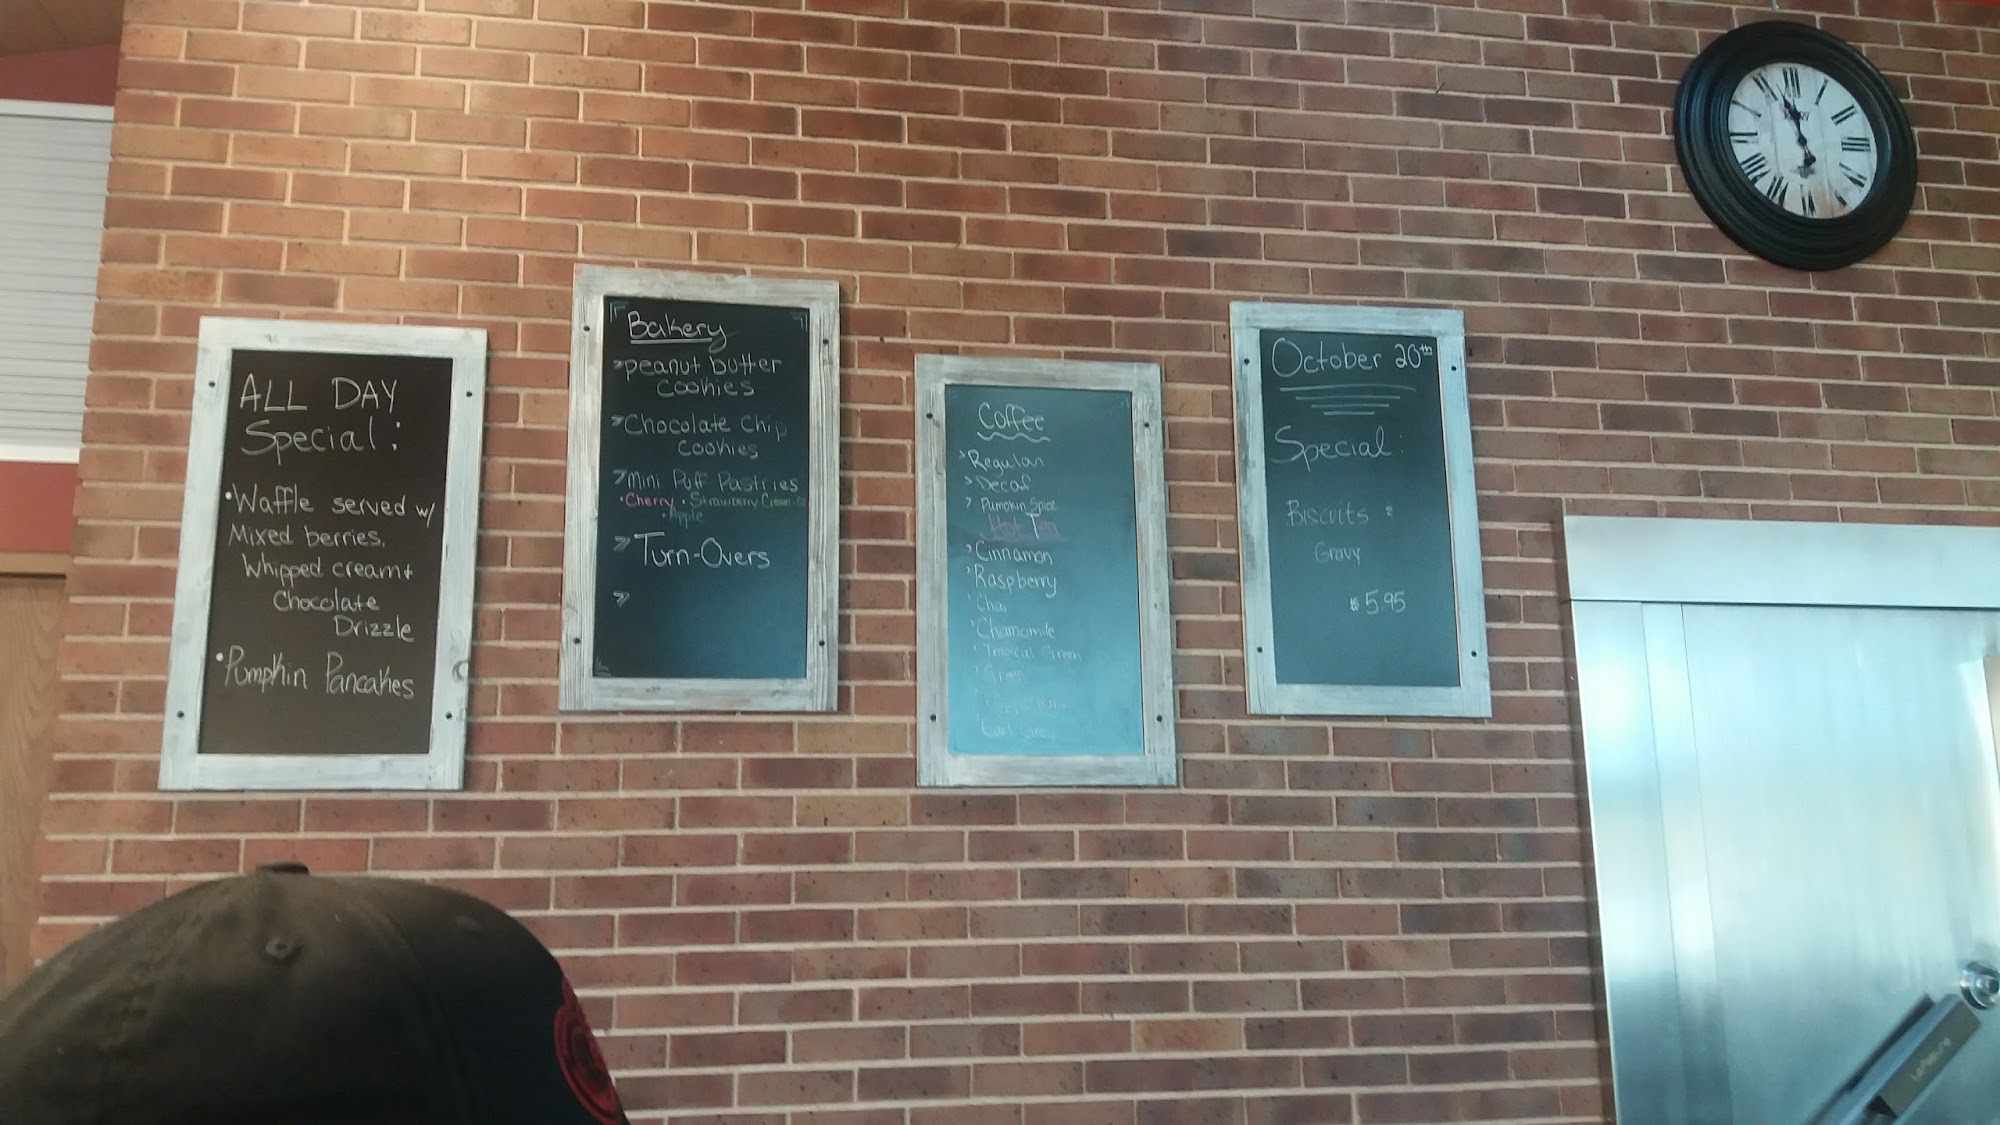 ALL DAY
Special:
• Waffle served w/
Mixed berries,
Whipped cream +
Chocolate
Drizzle
• Pumpkin Pancakes
Bakery
» peanut butter
cookies
» Chocolate Chip
cookies
» Mini Puff Pastries
• Cherry • Strawberry Cream
• Apple
» Turn-Overs
»
Coffee
> Regular
> Decaf
> Pumpkin Spice
Hot Tea
> Cinnamon
> Raspberry
> Chai
> Chamomile
> Tropical Green
> Green
> Earl Grey
October 20th
Special:
Biscuits &
Gravy
$5.95